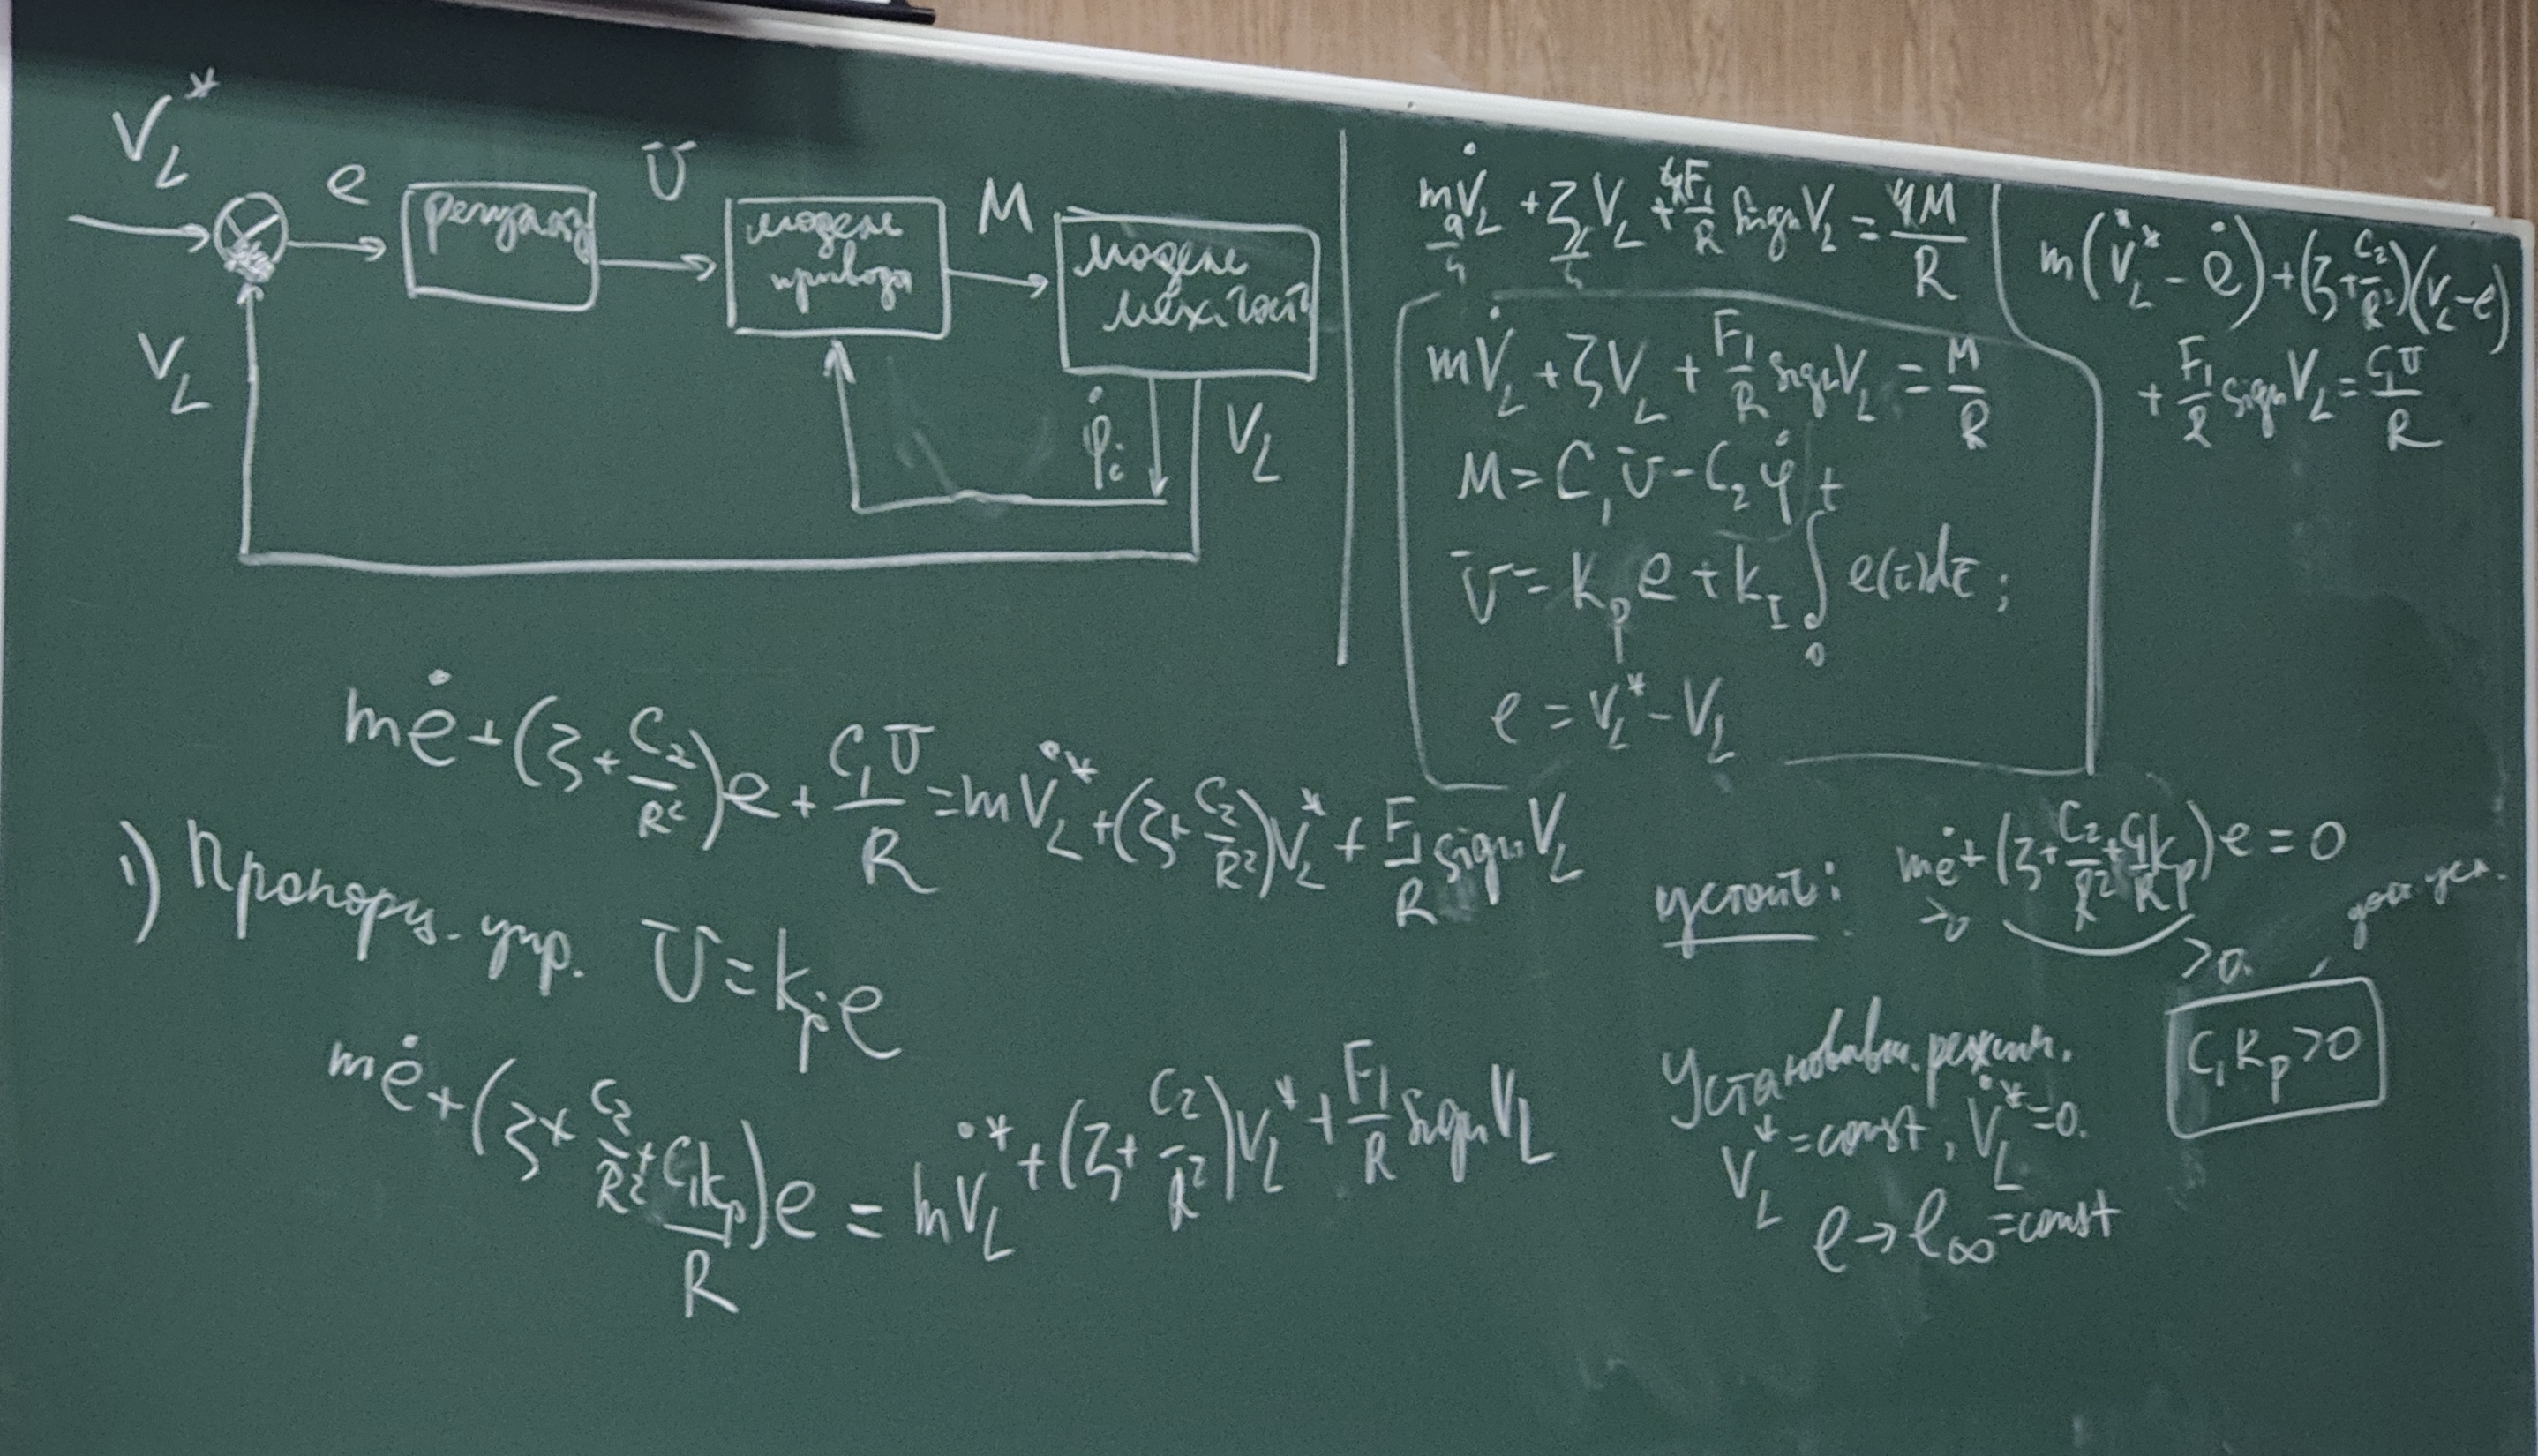 V_L^*
e
U
M
модель привода
модель мех. част.
V_L
φ̇_i
V_L
ζV_L + 4F_1/R sign V_L = 4M/R
mV̇_L + ζV_L + F_1/R sign V_L = M/R
M = C_1 U - C_2 φ̇
U = k_p e + k_I ∫_0^t e(τ)dτ ;
e = V_L^* - V_L
m(V̇_L^* - ė) + (ζ + C_2/R^2)(V_L - e)
+ F_1/R sign V_L = C_1 U/R
mė + (ζ + C_2/R^2)e + C_1 U/R = mV̇_L^* + (ζ + C_2/R^2)V_L^* + F_1/R sign V_L
1) Пропорц. упр. U = k_p e
mė + (ζ + C_2/R^2 + C_1 k_p/R)e = mV̇_L^* + (ζ + C_2/R^2)V_L^* + F_1/R sign V_L
устойч: mė + (ζ + C_2/R^2 + C_1/R k_p)e = 0
>0 >0.
C_1 k_p > 0
Установивш. режим.
V_L^* = const ; V̇_L^* = 0.
e → e_∞ = const